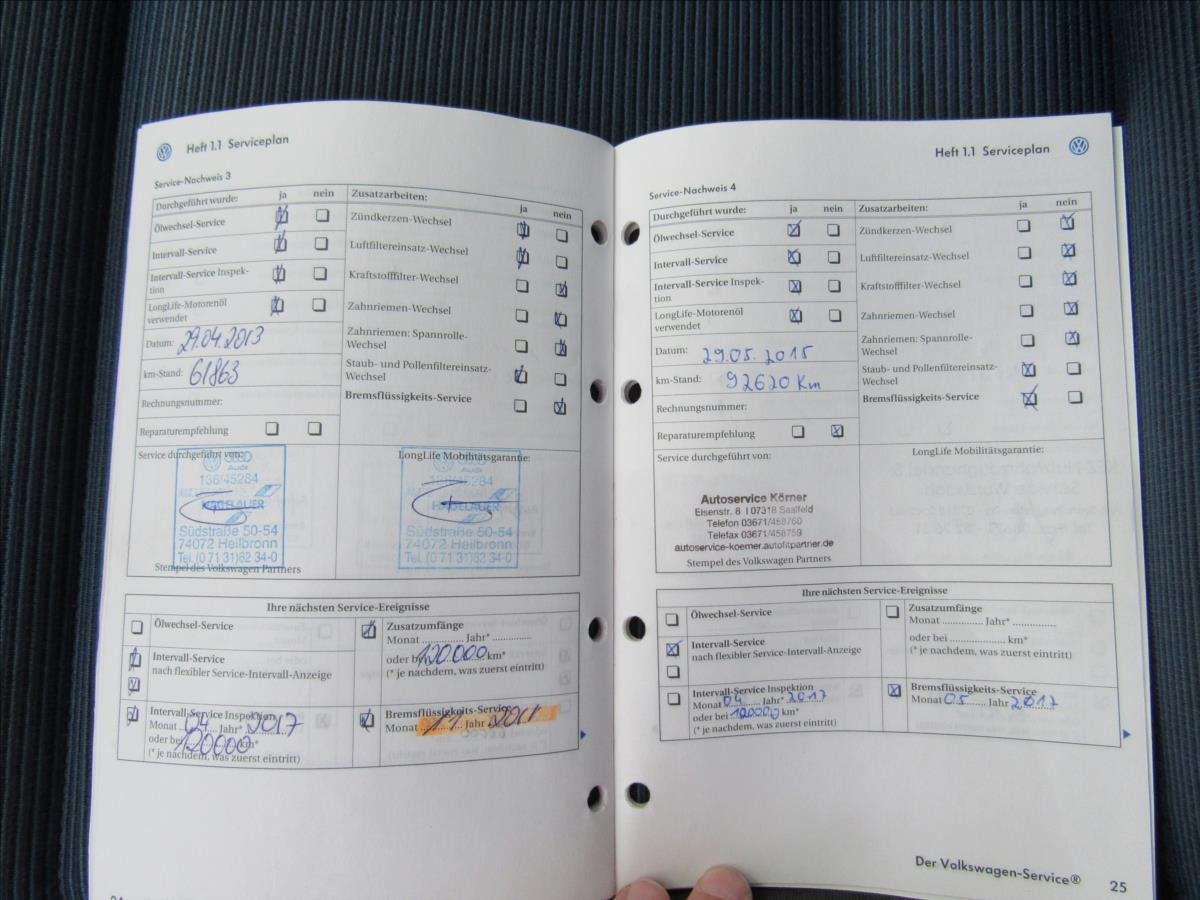 Heft 1.1 Serviceplan
Service-Nachweis 3
Durchgeführt wurde: ja nein
Ölwechsel-Service
Intervall-Service
Intervall-Service Inspek-
tion
LongLife-Motorenöl
verwendet
Datum: 29.04.2013
km-Stand: 61863
Rechnungsnummer:
Reparaturempfehlung
Zusatzarbeiten: ja nein
Zündkerzen-Wechsel
Luftfiltereinsatz-Wechsel
Kraftstofffilter-Wechsel
Zahnriemen-Wechsel
Zahnriemen: Spannrolle-
Wechsel
Staub- und Pollenfiltereinsatz-
Wechsel
Bremsflüssigkeits-Service
Service durchgeführt von:
Audi
136/45284
HAGELAUER
Südstraße 50-54
74072 Heilbronn
Tel. (0 71 31) 62 34-0
Stempel des Volkswagen Partners
LongLife Mobilitätsgarantie:
Audi
136/45284
HAGELAUER
Südstraße 50-54
74072 Heilbronn
Tel. (0 71 31) 62 34-0
Ihre nächsten Service-Ereignisse
Ölwechsel-Service
Intervall-Service
nach flexibler Service-Intervall-Anzeige
Intervall-Service Inspektion
Monat 04 Jahr* 2017
oder bei 120000 km*
(* je nachdem, was zuerst eintritt)
Zusatzumfänge
Monat .............. Jahr* ..............
oder bei 120000 km*
(* je nachdem, was zuerst eintritt)
Bremsflüssigkeits-Service
Monat 11 Jahr
Heft 1.1 Serviceplan
Service-Nachweis 4
Durchgeführt wurde: ja nein
Ölwechsel-Service
Intervall-Service
Intervall-Service Inspek-
tion
LongLife-Motorenöl
verwendet
Datum: 29.05.2015
km-Stand: 92620 Km
Rechnungsnummer:
Reparaturempfehlung
Zusatzarbeiten: ja nein
Zündkerzen-Wechsel
Luftfiltereinsatz-Wechsel
Kraftstofffilter-Wechsel
Zahnriemen-Wechsel
Zahnriemen: Spannrolle-
Wechsel
Staub- und Pollenfiltereinsatz-
Wechsel
Bremsflüssigkeits-Service
Service durchgeführt von:
Autoservice Körner
Eisenstr. 8 | 07318 Saalfeld
Telefon 03671/458760
Telefax 03671/458759
autoservice-koerner.autofitpartner.de
Stempel des Volkswagen Partners
LongLife Mobilitätsgarantie:
Ihre nächsten Service-Ereignisse
Ölwechsel-Service
Intervall-Service
nach flexibler Service-Intervall-Anzeige
Intervall-Service Inspektion
Monat 04 Jahr* 2017
oder bei 120000 km*
(* je nachdem, was zuerst eintritt)
Zusatzumfänge
Monat .............. Jahr* ..............
oder bei .............. km*
(* je nachdem, was zuerst eintritt)
Bremsflüssigkeits-Service
Monat 05 Jahr 2017
Der Volkswagen-Service®
25